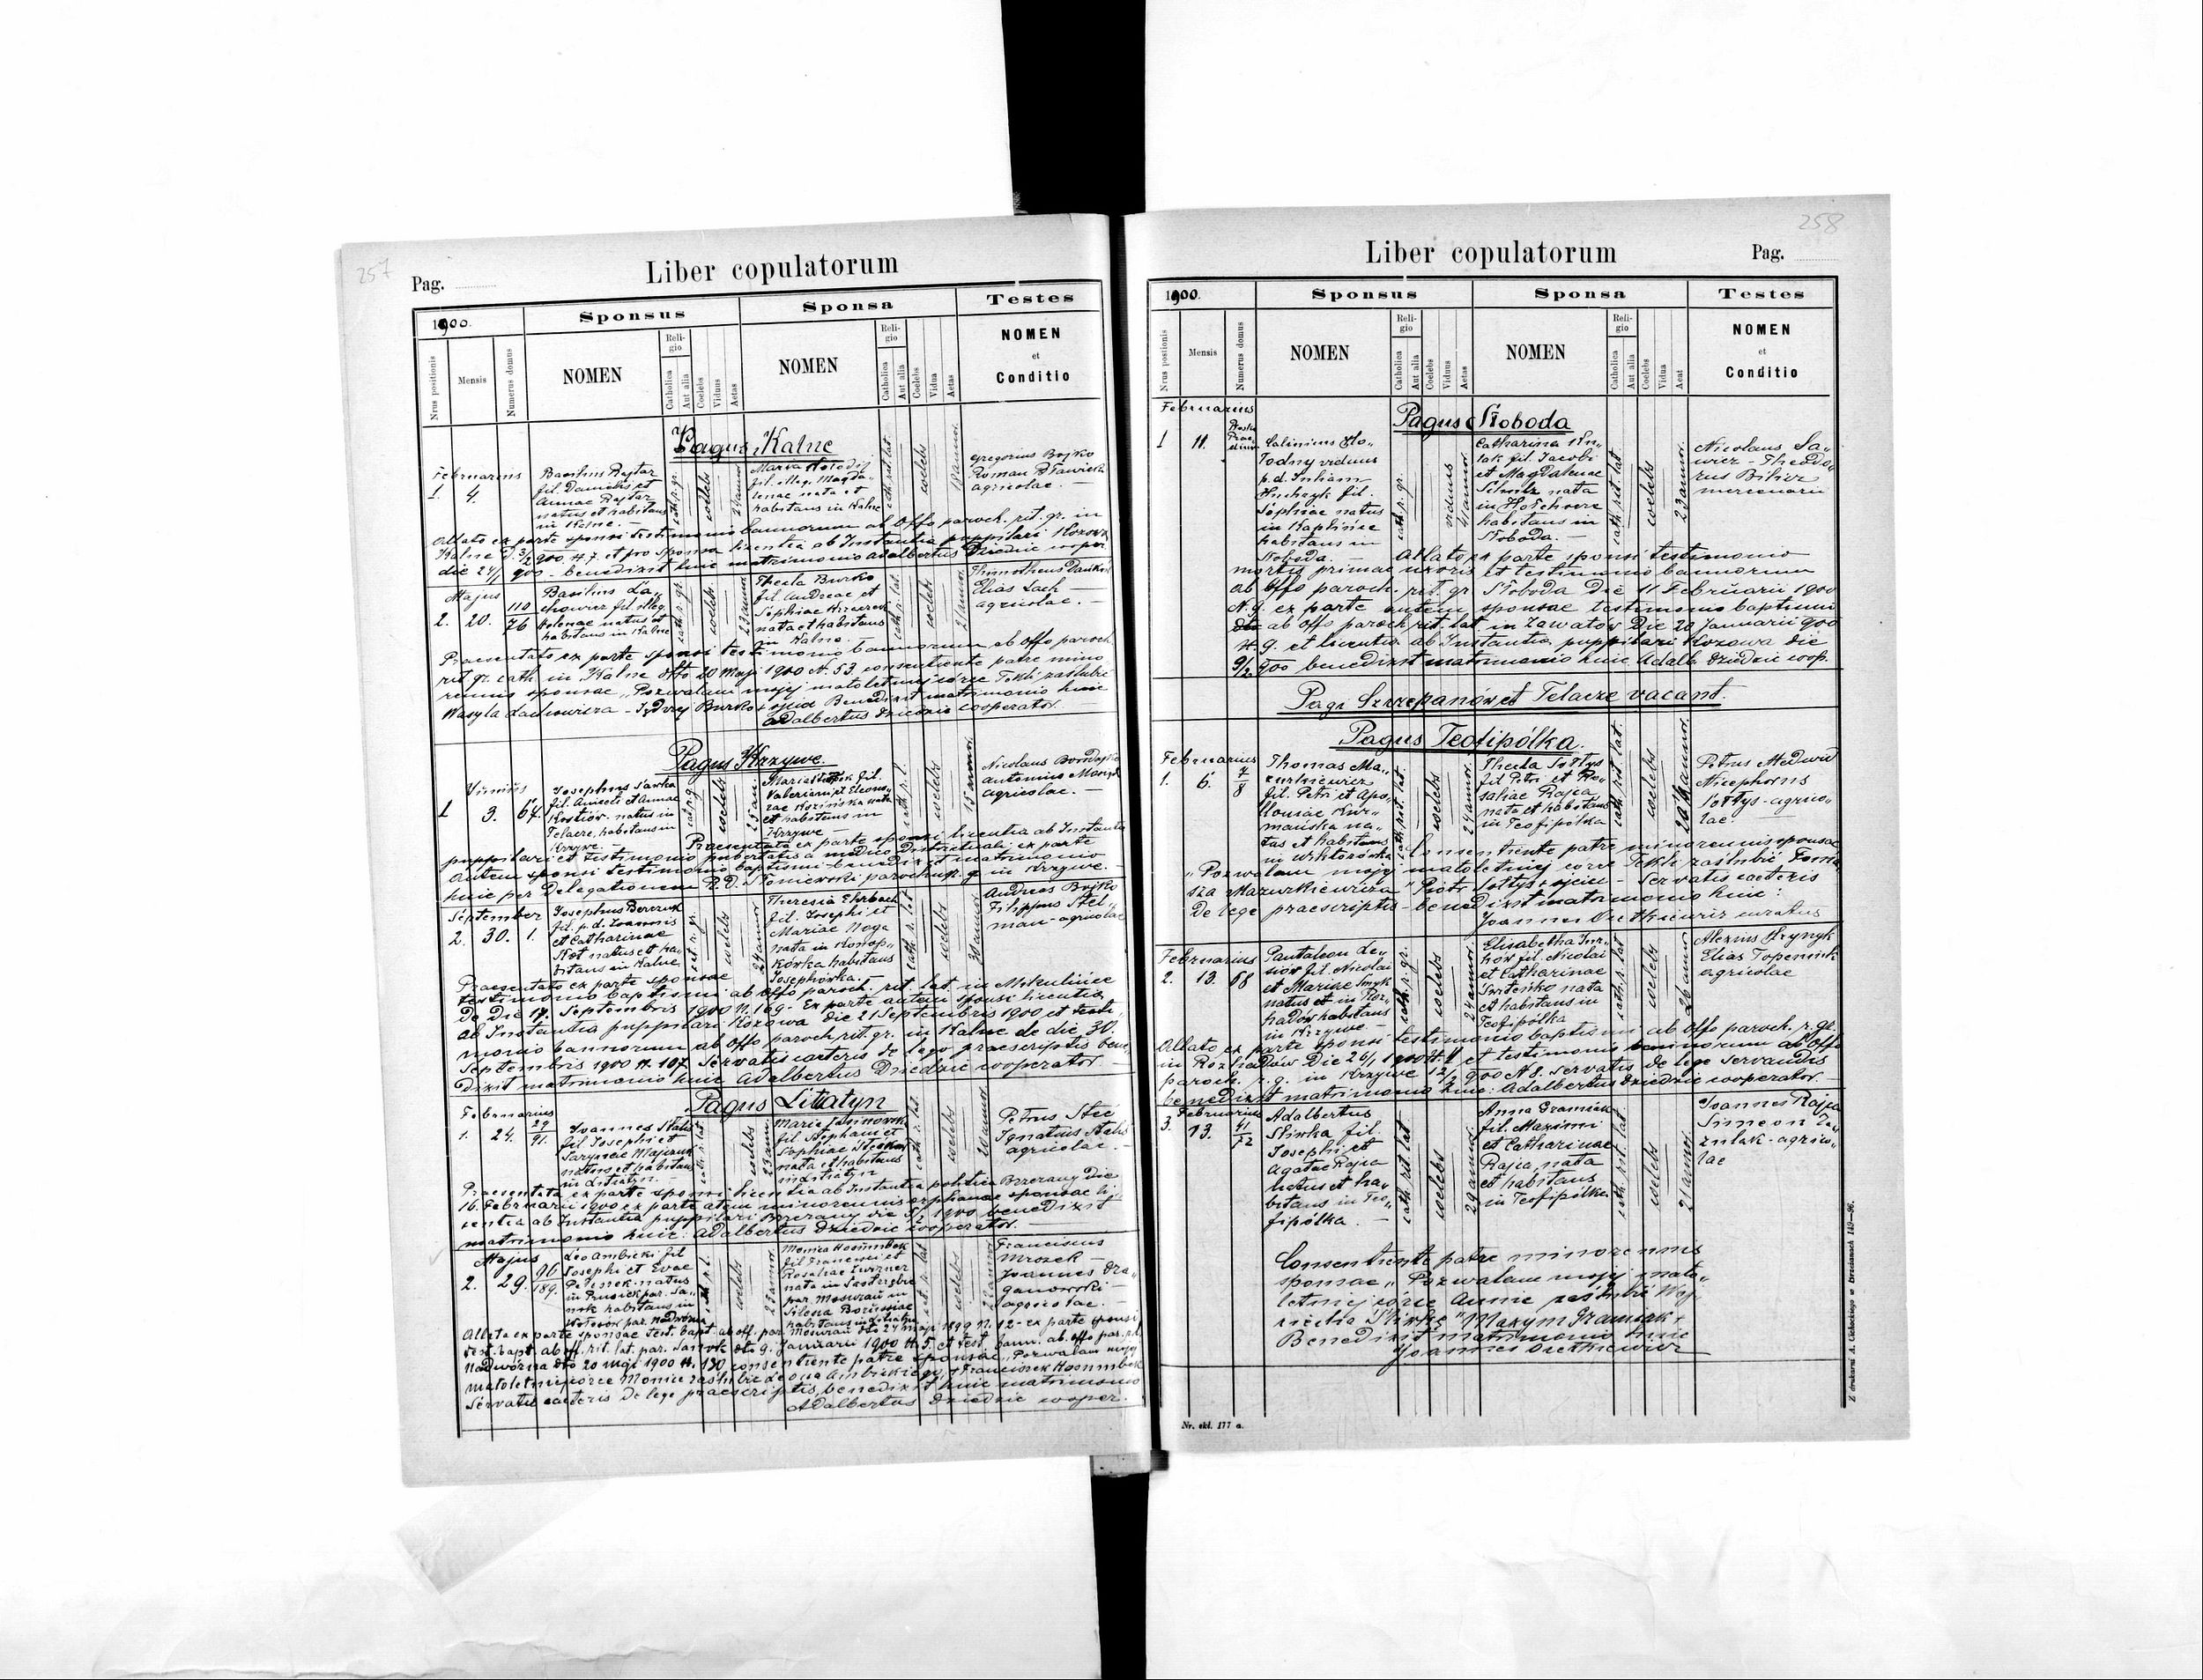 257
Pag.
Liber copulatorum
1900.
Sponsus
Sponsa
Testes
Nrus positionis
Mensis
Numerus domus
NOMEN
Religio
Catholica
Aut alia
Coelebs
Viduus
Aetas
NOMEN
Religio
Catholica
Aut alia
Coelebs
Vidua
Aetas
NOMEN
et
Conditio
Pagus Kalne
Februarius
1. 4.
Basilius Bojtar
fil. Danielis et
Annae Bojtar
natus et habitans
in Kalne. —
cath. r. gr.
coelebs
Maria
fil. illeg. Magda
lenae nata et
habitans in Kalne
cath. rit. lat
coelebs
18 annor.
Gregorius Bojko
Roman
agricolae. —
Allato ex parte sponsi testimonio bannorum ab Offo paroch. rit. gr. in
Kalne d. 3/2 900 N. 7. et pro sponsa licentia ab Instantia puppilari Kozowa
die 24/1 900 — benedixit huic matrimonio Adalbertus Dziedzic cooper
Majus
2. 20. 110/76
Basilius La„
chowicz fil. illeg.
Helenae natus et
habitans in Kalne
cath. r. gr.
coelebs
23 annor
Thecla Burko
fil. Andreae et
Sophiae
nata et habitans
in Kalne. —
cath. r. lat.
coelebs
21 annor.
Thimotheus
Elias Lach —
agricolae. —
Praesentato ex parte sponsi testimonio bannorum ab offo paroch
rit. gr. cath. in Kalne dtto 20 Maji 1900 N. 53. consentiente patre mino
rennis sponsae „Pozwalam mojej małoletniej córce Tekli zaślubić
Wasyla Lachowicza — Jędrzej Burko + ojciec Benedixit matrimonio huic
Adalbertus Dziedzic cooperator. —
Pagus Krzywe.
1 3. 67.
Josephus Sawka
fil. Aniceti et Annae
Kostiów. natus in
Telacze, habitans in
Krzywe. —
cath. r. g.
coelebs
25 ann.
Maria fil.
Valeriani et Eleono„
rae Kozińska nata
et habitans in
Krzywe —
cath. r. l.
coelebs
15 annor.
Nicolaus
Antonius
agricolae. —
Praesentata ex parte sponsi licentia ab Instantia
puppilari et testimonio pubertatis a medico Districtuali, ex parte
autem sponsi testimonio baptismi — benedixit matrimonio
huic per Delegationem R. D. Słoniewski parochus r. g. in Krzywe. —
September
2. 30. 1.
Josephus Berezuk
fil. p. d. Joannis
et Catharinae
Kot natus et ha„
bitans in Kalne
cat. r. gr.
coelebs
24 annor
Theresia Ehrbach
fil. Josephi et
Mariae Noga
nata in Konop„
kówka habitans
Josephówka. —
cath. r. lat
coelebs
30 annor.
Andreas Bojko
Filippus Stel„
mau — agricolae
Praesentato ex parte sponsae
testimonio baptismi ab Offo paroch. rit. lat. in Mikulińce
de die 17. Septembris 1900 N. 169 — Ex parte autem sponsi licentia
ab Instantia puppilari Kozowa die 21 Septembris 1900 et testi„
monio bannorum ab offo paroch rit. gr. in Kalne de die 30.
Septembris 1900 N. 107. Servatis caeteris de lege praescriptis bene„
dixit matrimonio huic Adalbertus Dziedzic cooperator. —
Pagus Litatyn
Februarius
1. 24. 29/91.
Joannes
fil. Josephi et
natus et habitans
in Litatyn. —
cath. r. lat
coelebs
23 ann.
Maria
fil. Stephani et
Sophiae
nata et habitans
in Litatyn
cath. r. lat.
coelebs
20 annor.
Petrus Stec
Ignatius
agricolae. —
Praesentata ex parte sponsi licentia ab Instantia politica Brzezany die
16. Februarii 1900 ex parte autem minorennis orphanae sponsae li„
centia ab Instantia puppilari Brzezany die 5/2 1900 benedixit
matrimonio huic: Adalbertus Dziedzic cooperator. —
Majus
2. 29. 96/189.
Leo Ambicki fil
Josephi et Evae
natus
in par. Sa„
nok habitans in
par. Nadwórna
cath. r. l.
coelebs
25 annor.
Monica
fil. Francisci et
Rosaliae
nata in
par. Mosurau in
Silesia Borussiae
habitans in Litatyn
cat. r. lat
coelebs
annor
Franciscus
Mrozek —
Joannes Dra„
ganowski —
agricolae. —
Allato ex parte sponsae test. bapt. ab off. par. Mosurau dto 24 Maji 1899 N. 12 — ex parte sponsi
test. bapt. ab off. rit. lat. par. Sanok dto 9. Januarii 1900 N. 5. et test. bann. ab. offo par. r. l.
Nadwórna dto 20 Maji 1900 N. 130 consentiente patre sponsae „Pozwalam mojej
małoletniej córce Monice zaślubić Leona Ambickiego, + Franciszek
Servatis caeteris de lege praescriptis, benedixit huic matrimonio
Adalbertus Dziedzic cooper.
258
Liber copulatorum
Pag.
1900.
Sponsus
Sponsa
Testes
Nrus positionis
Mensis
Numerus domus
NOMEN
Religio
Catholica
Aut alia
Coelebs
Viduus
Aetas
NOMEN
Religio
Catholica
Aut alia
Coelebs
Vidua
Aeat
NOMEN
et
Conditio
Pagus Słoboda
Februarius
1 11.
Calinicus Ho„
łodny viduus
p. d. Juliam
Huhryk fil.
Sophiae natus
in Kaplińce
habitans in
Słoboda. —
cath. r. gr.
viduus
41 annor.
Catharina
fil. Jacobi
et Magdalenae
Schulz nata
in
habitans in
Słoboda. —
cath. rit. lat
coelebs
23 annor.
Nicolaus Sa„
wicz — Theodo„
rus
mercenarii
Allato ex parte sponsi testimonio
mortis primae uxoris et testimonio bannorum
ab Offo paroch. rit. gr. Słoboda die 11 Februarii 1900
N. 9. ex parte autem sponsae testimonio baptismi
ab offo paroch. rit. lat. in Zawałów die 20 Januarii 900
N. 9. et licentia ab Instantia puppilari Kozowa die
9/2 900 benedixit matrimonio huic Adalb. Dziedzic coop.
Pagi Szczepanów et Telacze vacant.
Pagus Teofipólka.
Februarius
1. 6. 7/8
Thomas Ma„
zurkiewicz
fil. Petri et Apo„
lloniae Kur„
mańska na„
tus et habitans
in Wiktorówka
cath. rit. lat.
coelebs
24 annor.
Thecla Sołtys
fil Petri et Ro„
saliae Rajca
nata et habitans
in Teofipólka
cath. rit. lat.
coelebs
annor.
Petrus Medwid
Nicephorus
Sołtys — agrico„
lae. —
Consentiente patre minorennis sponsae
„Pozwalam mojej małoletniej córce Tekli zaślubić Toma„
sza Mazurkiewicza" Piotr Sołtys + ojciec — Servatis caeteris
de lege praescriptis — benedixit matrimonio huic:
Joannes curatus
Februarius
2. 13. 68
Pantaleon Le„
siów fil. Nicolai
et Mariae Smyk
natus et in Roz„
hadów habitans
in Krzywe —
cath. r. gr.
coelebs
24 annor.
Elisabetha Jur„
ków fil. Nicolai
et Catharinae
nata
et habitans in
Teofipólka
cath. r. lat
coelebs
26 annor
Alexius Hrynyk
Elias
agricolae
Allato ex parte sponsi testimonio baptismi ab offo paroch. r. gr.
in Rozhadów die 26/1 1900 N. 4 et testimonio bannorum ab Offo
paroch. r. g. in Krzywe 12/2 900 N 8. servatis de lege servandis
benedixit matrimonio huic: Adalbertus Dziedzic cooperator. —
Februarius
3. 13. 41/52
Adalbertus
Śliwka fil.
Josephi et
Agatae Rajca
natus et ha„
bitans in Teo„
fipólka. —
cath. rit lat
coelebs
29 annor.
Anna Gramiak
fil. Maximi
et Catharinae
Rajca, nata
et habitans
in Teofipólka
cath. rit. lat
coelebs
21 annor.
Joannes Rajca
Simeon
agrico„
lae
Consentiente patre minorennis
sponsae „Pozwalam mojej mało„
letniej córce Annie zaślubić Woj
ciecha Śliwkę" Maxym Gramiak +
Benedixit matrimonio huic
Joannes
Nr. skł. 177 a.
Z drukarni A. Cichockiego w Brzeżanach 149—96.